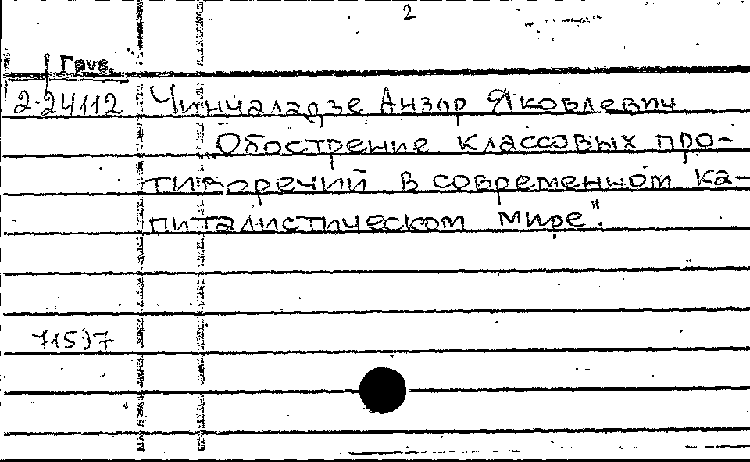 2
Груз.
2-24112 Чинчаладзе Анзор Яковлевич
Обострение классовых про-
тиворечий в современном ка-
питалистическом мире".
71597